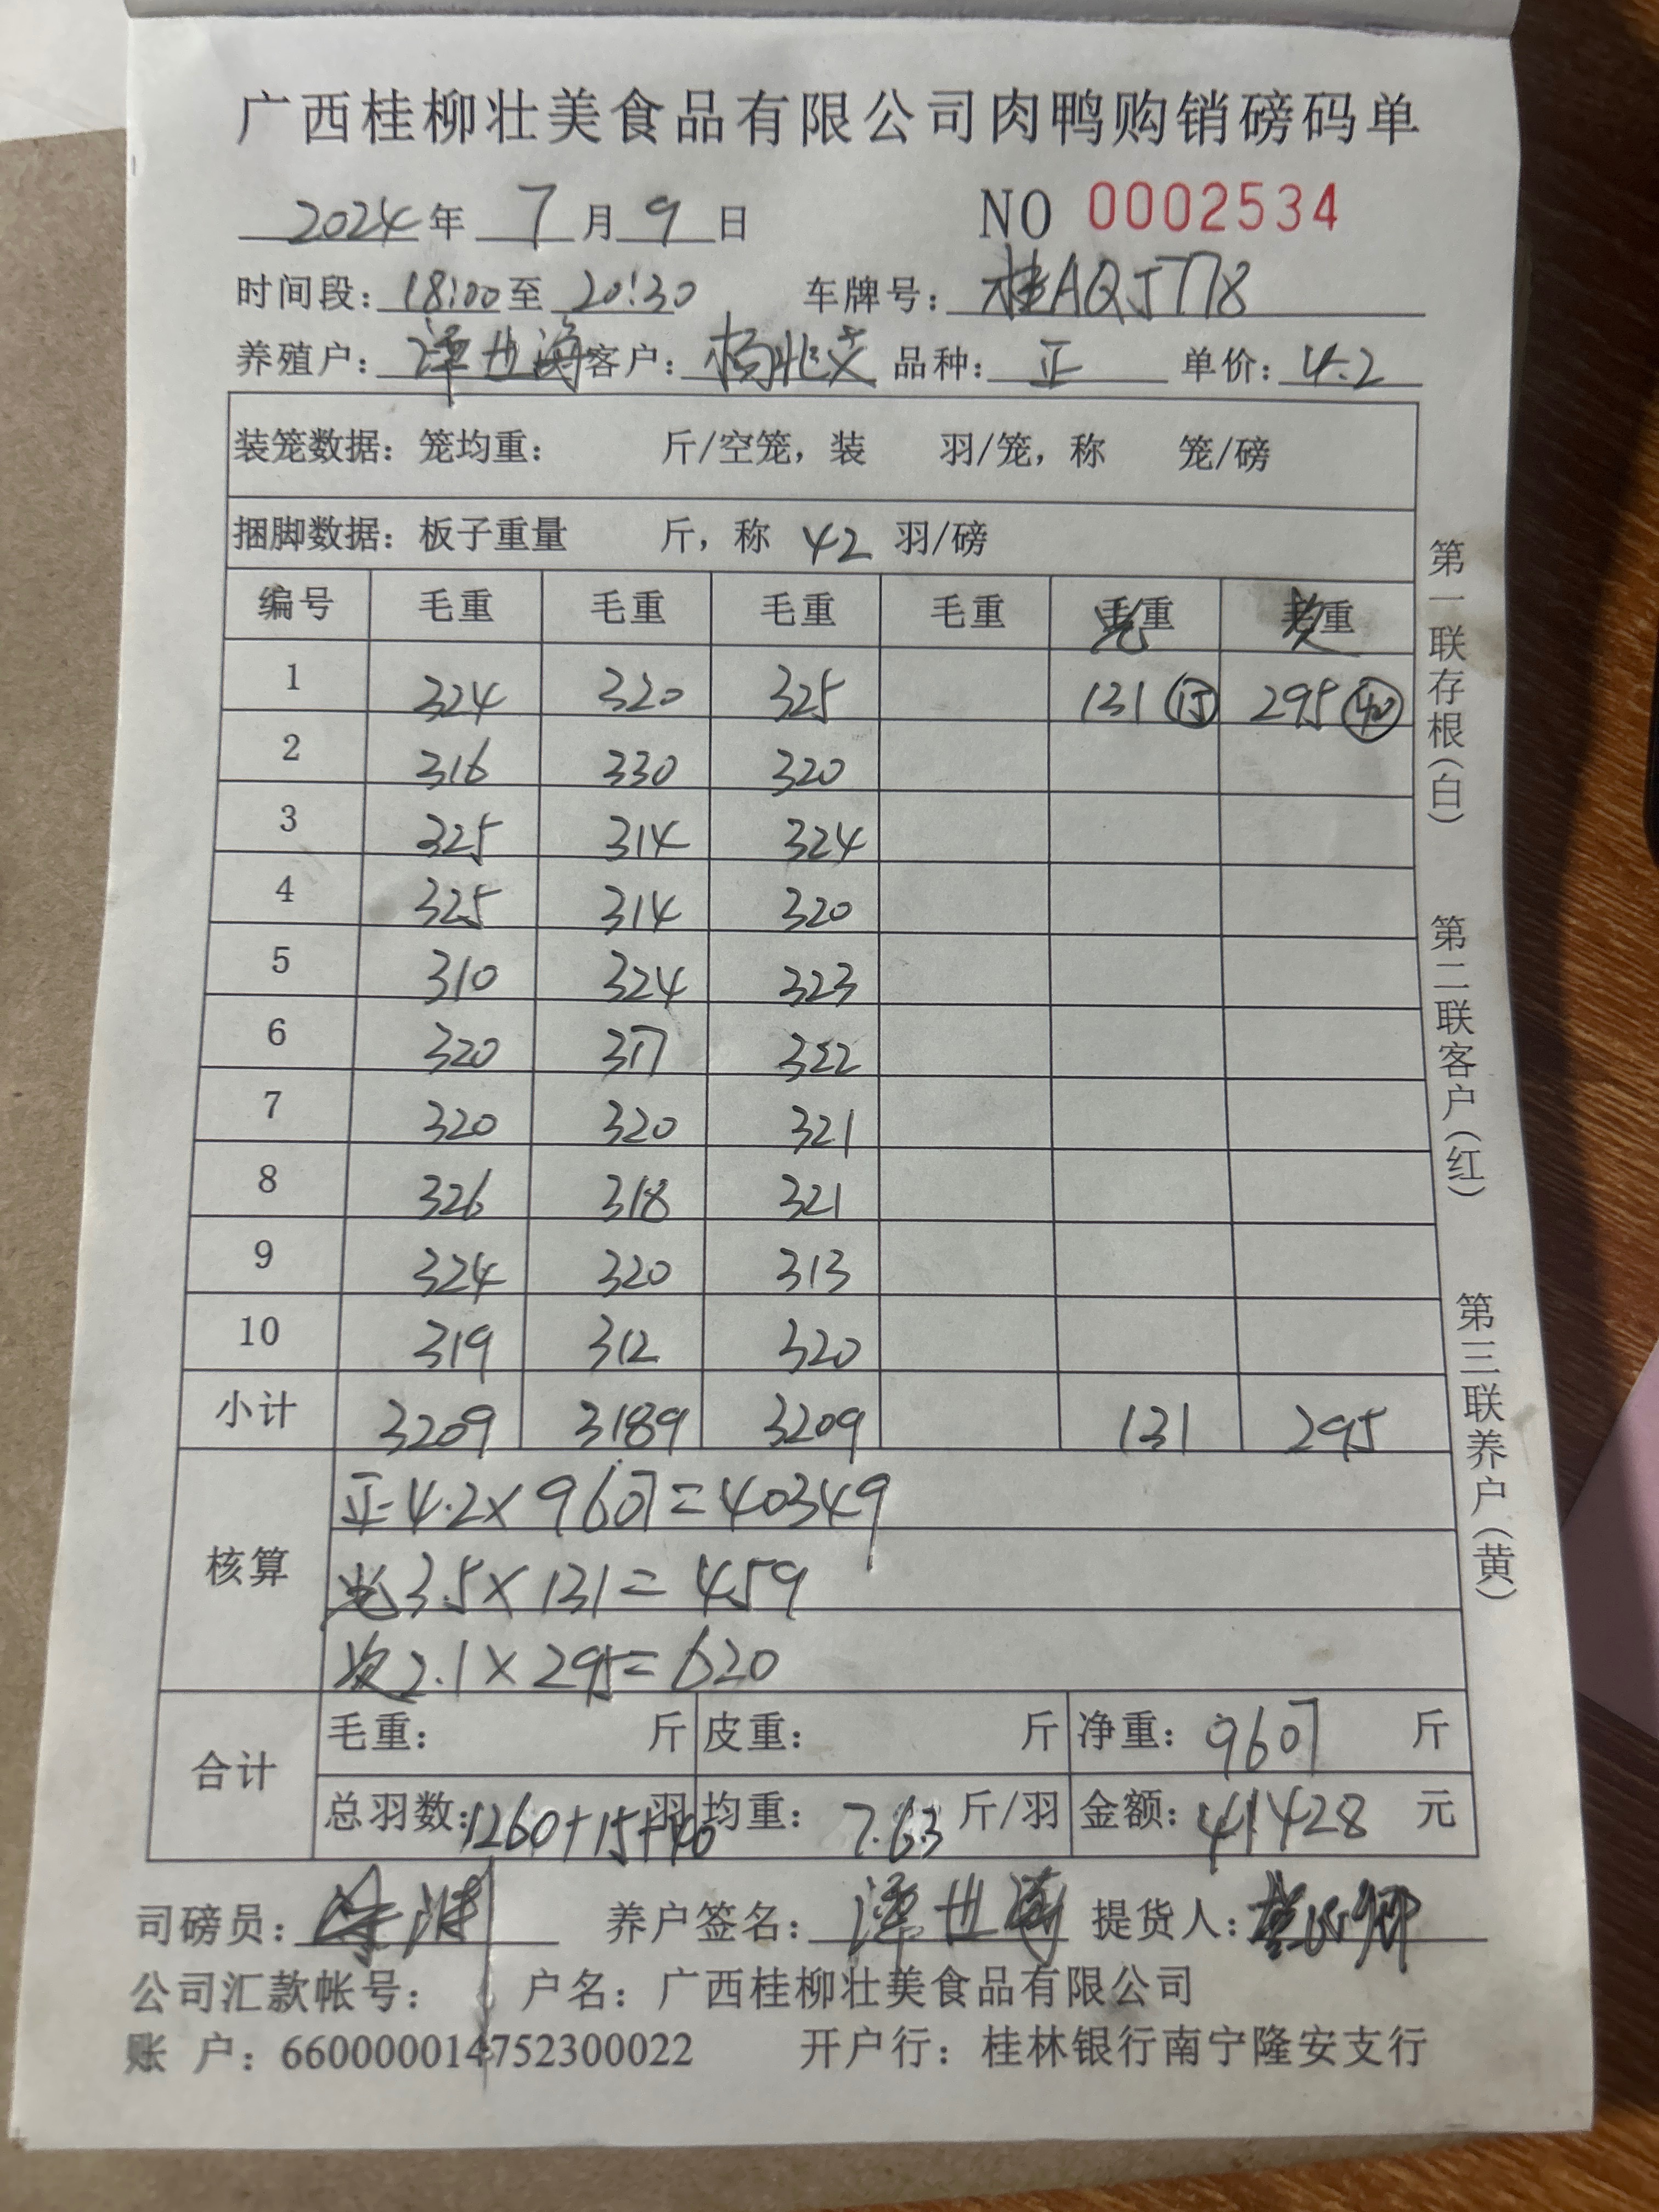 广西桂柳壮美食品有限公司肉鸭购销磅码单
2024年 7月9日 NO 0002534
时间段：18:00至 20:30 车牌号：桂AQJ778
养殖户：谭世海 客户：杨兆 品种：正 单价：4.2
装笼数据：笼均重： 斤/空笼，装 羽/笼，称 笼/磅
捆脚数据：板子重量 斤，称 42 羽/磅
编号 毛重 毛重 毛重 毛重 重 次重
1 324 320 325 131 ⑮ 295 ㊵
2 316 330 320
3 325 314 324
4 325 314 320
5 310 324 323
6 320 317 322
7 320 320 321
8 326 318 321
9 324 320 313
10 319 312 320
小计 3209 3189 3209 131 295
核算
正4.2×9607=40349
3.5×131=459
次2.1×295=620
合计
毛重： 斤 皮重： 斤 净重：9607 斤
总羽数：1260+15+40羽 均重：7.63 斤/羽 金额：41428 元
司磅员： 养户签名：谭世海 提货人：
公司汇款帐号： 户名：广西桂柳壮美食品有限公司
账 户：660000014752300022 开户行：桂林银行南宁隆安支行
第一联存根（白）
第二联客户（红）
第三联养户（黄）